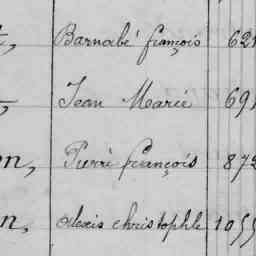 Barnabé françois 621
Jean Marie 691
on, Pierre françois 872
n, alexis christophle 1055